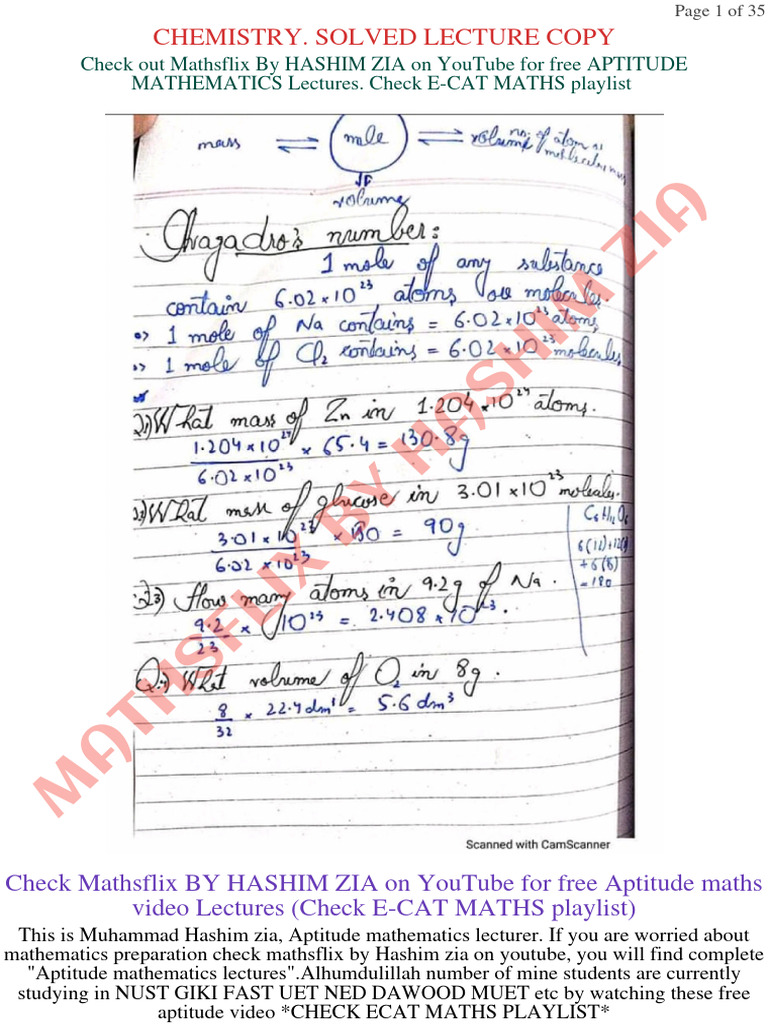 Page 1 of 35
CHEMISTRY. SOLVED LECTURE COPY
Check out Mathsflix By HASHIM ZIA on YouTube for free APTITUDE
MATHEMATICS Lectures. Check E-CAT MATHS playlist
mass ⇌ mole ⇌ volume no. of atom or
molecules
volume
Avagadro's number:
1 mole of any substance
contain 6.02×10²³ atoms or molecules.
1 mole of Na contains = 6.02×10²³ atoms
1 mole of Cl₂ contains = 6.02×10²³ molecules
Q1) What mass of Zn in 1.204×10²⁴ atoms.
1.204×10²⁴ / 6.02×10²³ × 65.4 = 130.8g
What mass of glucose in 3.01×10²³ molecules.
3.01×10²³ / 6.02×10²³ × 180 = 90g
C₆H₁₂O₆
6(12)+12(1)
+6(8)
=180
Q3) How many atoms in 9.2g of Na.
9.2 / 23 × 10²³ = 2.408×10²³.
Q4) What volume of O₂ in 8g.
8 / 32 × 22.4 dm = 5.6 dm³
MATHSFLIX BY HASHIM ZIA
Scanned with CamScanner
Check Mathsflix BY HASHIM ZIA on YouTube for free Aptitude maths
video Lectures (Check E-CAT MATHS playlist)
This is Muhammad Hashim zia, Aptitude mathematics lecturer. If you are worried about
mathematics preparation check mathsflix by Hashim zia on youtube, you will find complete
"Aptitude mathematics lectures".Alhumdulillah number of mine students are currently
studying in NUST GIKI FAST UET NED DAWOOD MUET etc by watching these free
aptitude video *CHECK ECAT MATHS PLAYLIST*